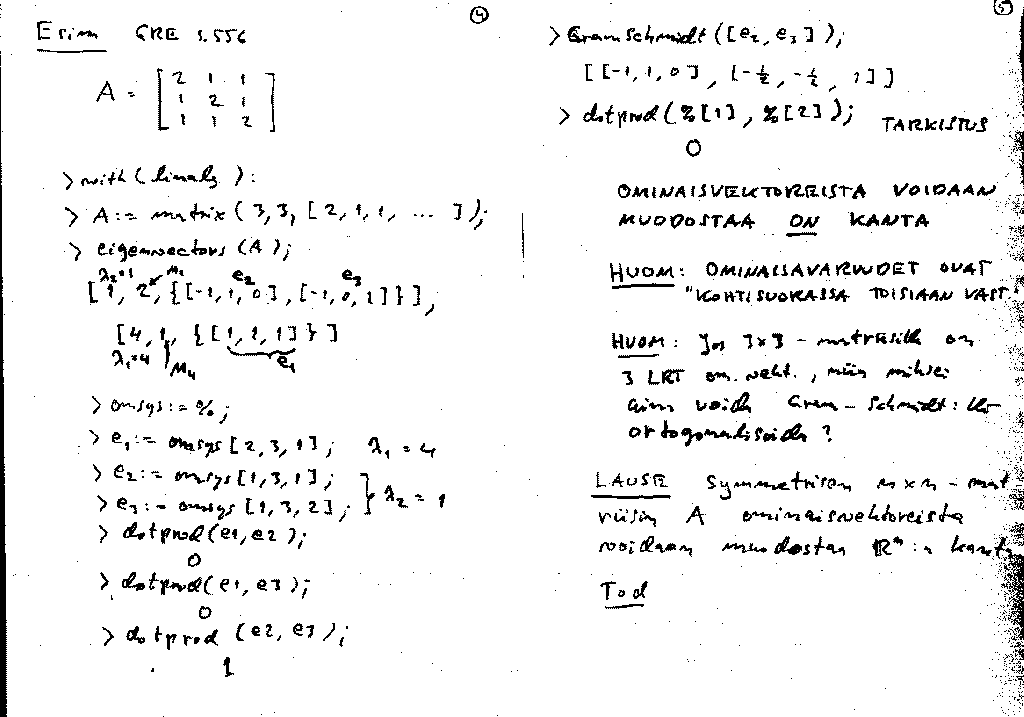 ④
Esim GRE s.556
A = [ 2 1 1
1 2 1
1 1 2 ]
> with(linalg):
> A:= matrix(3,3,[2,1,1, ... ]);
> eigenvectors(A);
λ₂=1 M₁ e₂ e₃
[1, 2, {[-1,1,0], [-1,0,1]}],
[4, 1, {[1,1,1]}]
λ₁=4 M₄ e₁
> omsys:= %;
> e₁:= omsys[2,3,1]; λ₁ = 4
> e₂:= omsys[1,3,1];
> e₃:= omsys[1,3,2]; } λ₂ = 1
> dotprod(e1,e2);
0
> dotprod(e1,e3);
0
> dotprod(e2,e3);
1
⑤
> GramSchmidt([e₂,e₃]);
[[-1,1,0], [-½,-½, 1]]
> dotprod(%[1], %[2]); TARKISTUS
0
OMINAISVEKTOREISTA VOIDAAN
MUODOSTAA ON KANTA
HUOM: OMINAISAVARUUDET OVAT
"KOHTISUORASSA TOISIAAN VAST"
HUOM: Jos 3×3 - matriisilla on
3 LRT om. vekt., niin miksei
aina voida Gram-Schmidt:lla
ortogonalisoida?
LAUSE Symmetrisen n×n - mat
riisin A ominaisvektoreista
voidaan muodostaa ℝⁿ:n kanta
Tod